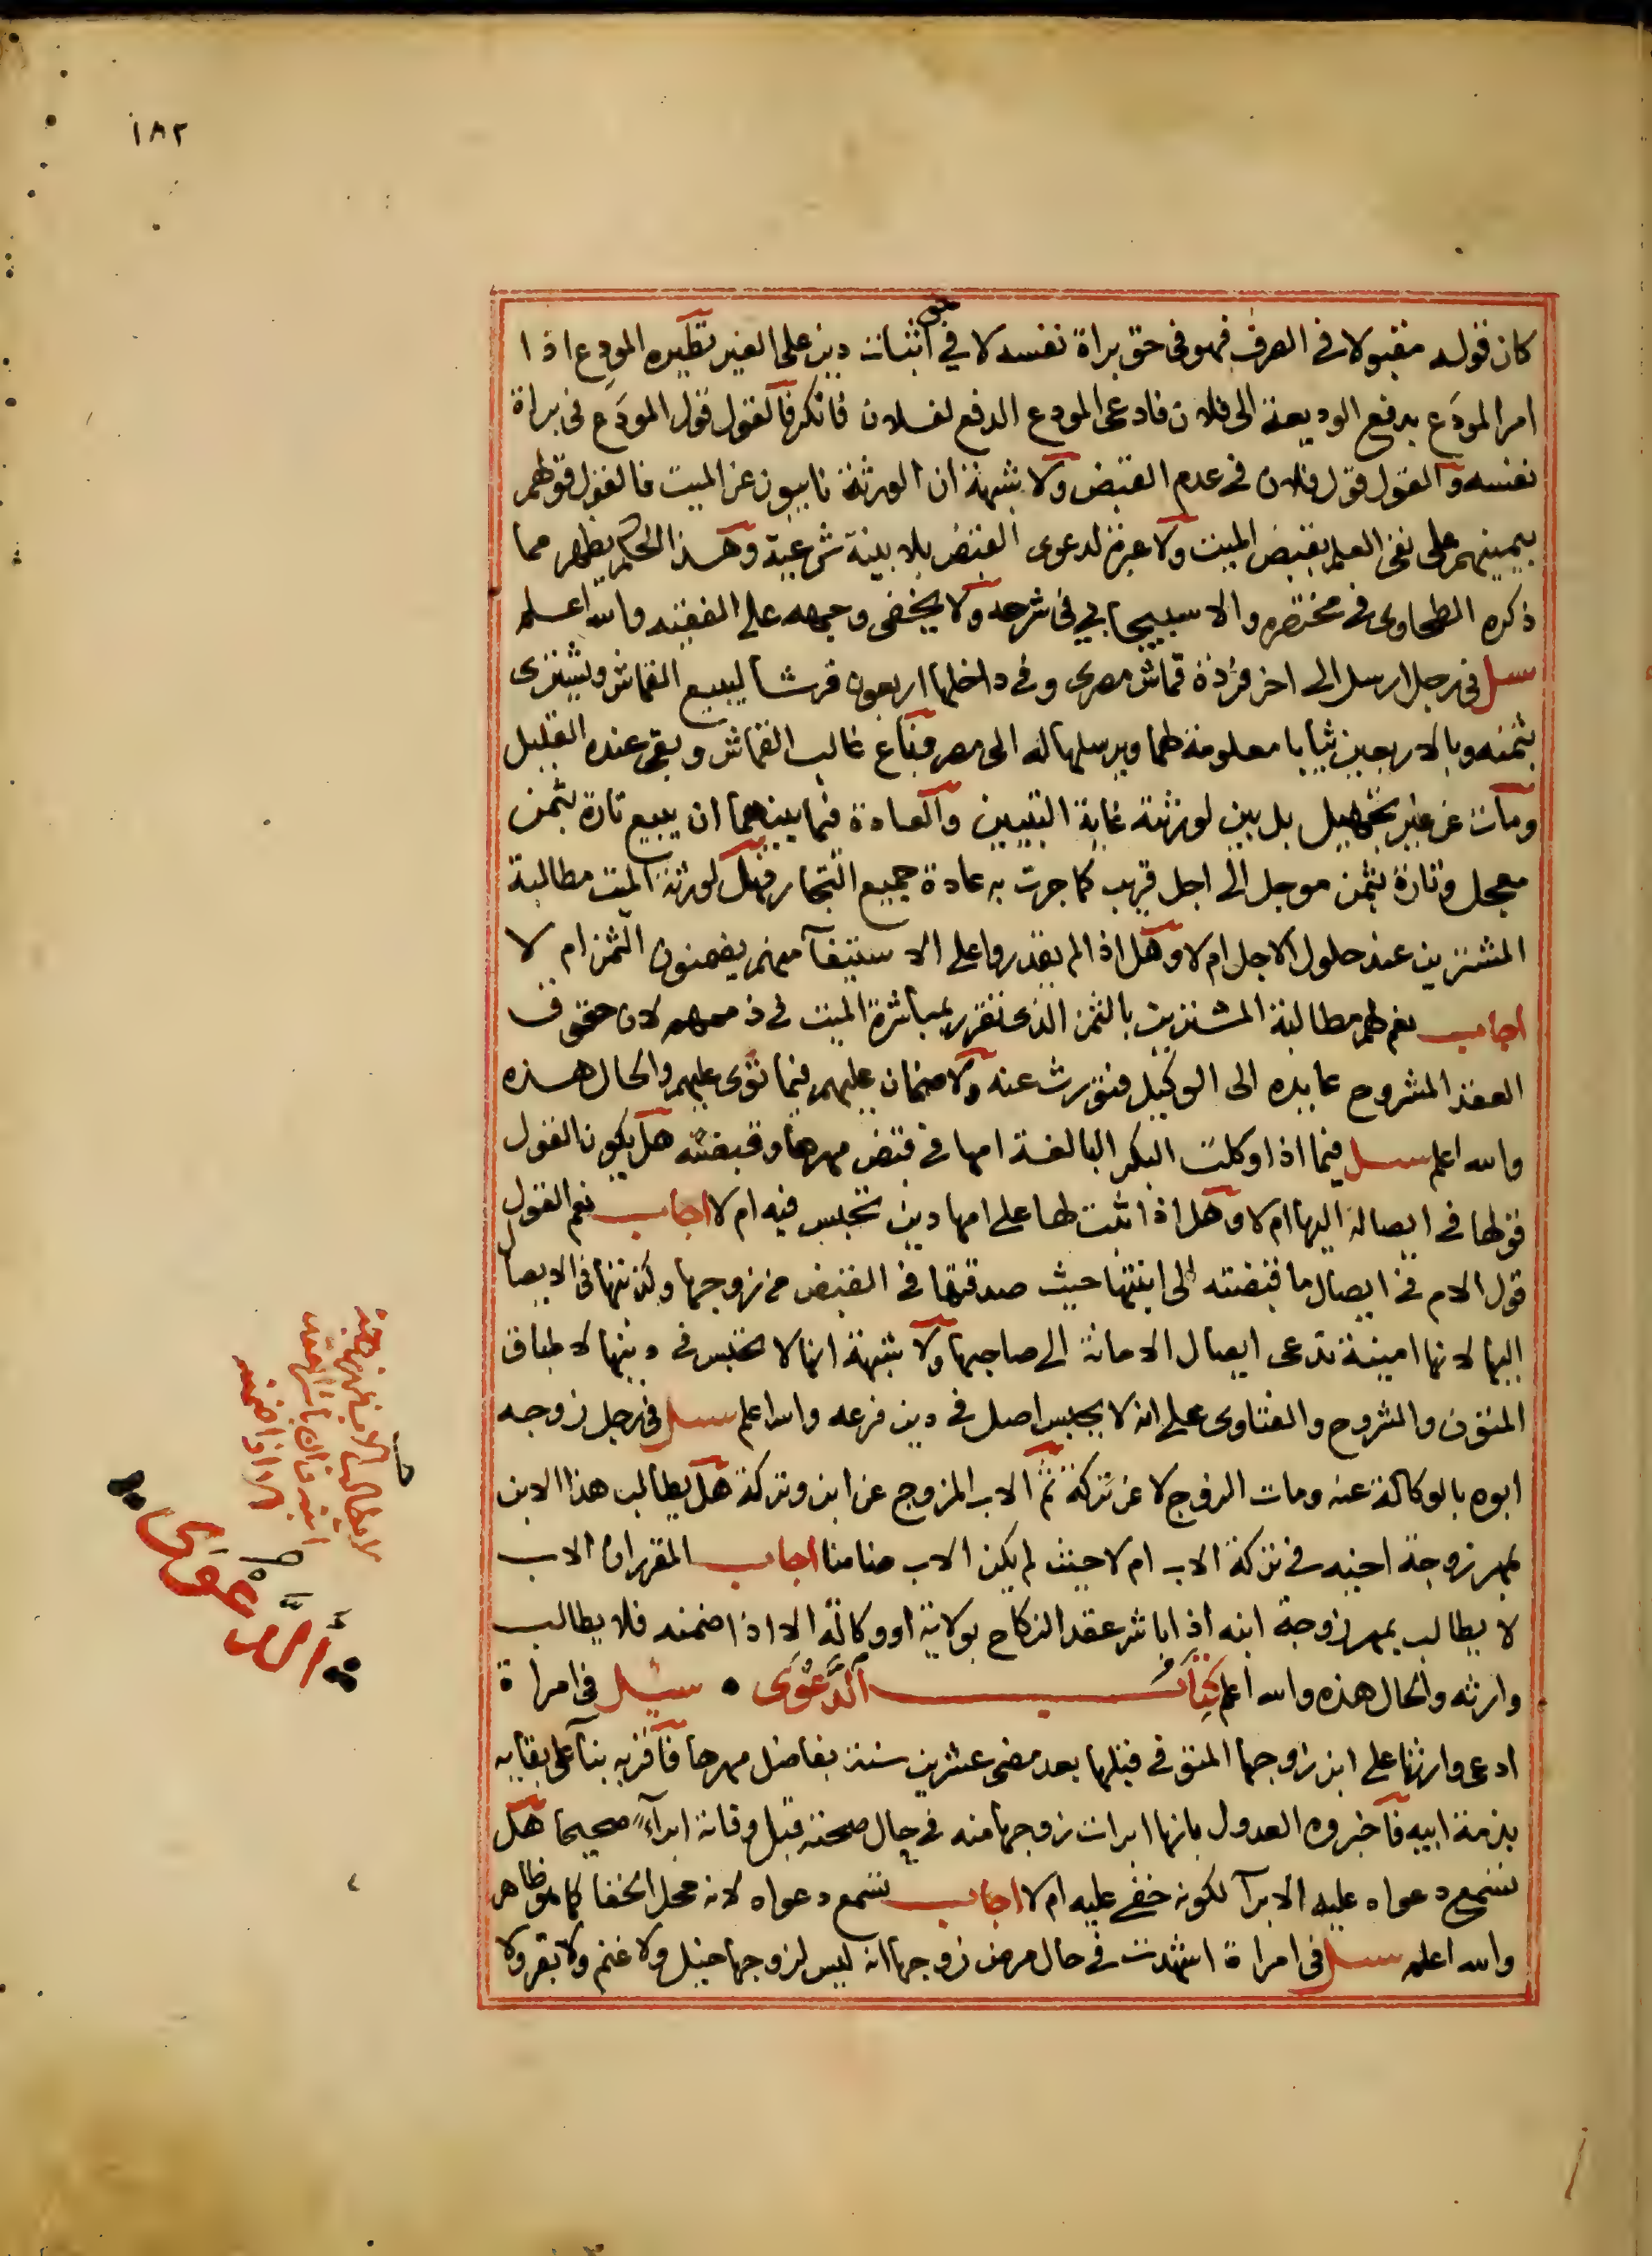 ١٨٢
كان قوله مقبولا في الصرف فهو في حق براة نفسه لا في حق اثبات دين على الغير نظيره المودع اذا
امر المودَع بدفع الوديعة الى فلان فادعى المودع الدفع لفلان فانكر فالقول قول المودَع في براة
نفسه والقول قول فلان في عدم القبض ولا شبهة ان الورثة نايبون عن الميت فالقول قولهم
بيمينهم على نفي العلم بقبض الميت ولا عبرة لدعوى القبض بلا بينة شرعية وهذا الحكم يظهر مما
ذكره الطحاوى في مختصره والاسبيجابي في شرحه ولا يخفى وجهه على الفقيه والله اعلم
سيل في رجل ارسل الى اخر فردة قماش مصرى وفي داخلها اربعون قرشا ليبيع القماش ويشترى
بثمنه وبالاربعين ثيابا معلومة لهما ويرسلها له الى مصر فباع غالب القماش وبقى عنده القليل
ومات عن غير تجهيل بل بين لورثته غاية التبيين والعادة فيما بينهما ان يبيع تارة بثمن
معجل وتارة بثمن موجل الى اجل قريب كما جرت به عادة جميع التجار فهل لورثة الميت مطالبة
المشترين عند حلول الاجل ام لا وهل اذا لم يقدروا على الاستيفآ منهم يضمنون الثمن ام لا
اجاب نعم لهم مطالبة المشترين بالثمن الذى تقرر بمباشرة الميت في ذممهم لان حقوق
العقد المشروح عايده الى الوكيل فتورث عنه ولا ضمان عليهم فيما توى عليهم والحال هذه
والله اعلم سيل فيما اذا وكلت البكر البالغة امها في قبض مهرها وقبضته هل يكون القول
قولها في ايصاله اليها ام لا وهل اذا ثبت لها على امها دين تحبس فيه ام لا اجاب نعم القول
قول الام في ايصال ما قبضته الى ابنتها حيث صدقتها في القبض من زوجها وكذبتها في الايصال
اليها لانها امينة تدعى ايصال الامانة الى صاحبها ولا شبهة انها لا تحبس في دينها لاطباق
المتون والشروح والفتاوى على انه لا يحبس اصل في دين فرعه والله اعلم سيل في رجل زوجه
ابوه بالوكالة عنه ومات الزوج لا عن تركة ثم الاب المزوج عن ابن وتركة هل يطالب هذا الابن
بمهر زوجة اخيه في تركة الاب ام لا حيث لم يكن الاب ضامنا اجاب المقرر ان الاب
لا يطالب بمهر زوجة ابنه اذا باشر عقد النكاح بولاية او وكالة الا اذا ضمنه فلا يطالب
وارثه والحال هذه والله اعلم كِتَابُ الدَّعْوَى • سيل في امراة
ادعى وارثها على ابن زوجها المتوفى قبلها بعد مضى عشرين سنة بفاضل مهرها فاقر به بنآ على بقايه
بذمة ابيه فاخبروه العدول بانها ابرات زوجها منه في حال صحته قبل وفاته ابرآءً صحيحا هل
تسمع دعواه عليه الابرآ لكونه خفى عليه ام لا اجاب تسمع دعواه لانه محل الخفا كما هو ظاهر
والله اعلم سيل في امراة اشهدت في حال مرض زوجها انه ليس لزوجها خيل ولا غنم ولا بقر ولا
لا يطالب الاب بمهر زوجة
ابنه وان باشر العقد
الا اذا ضمنه
الدعوى